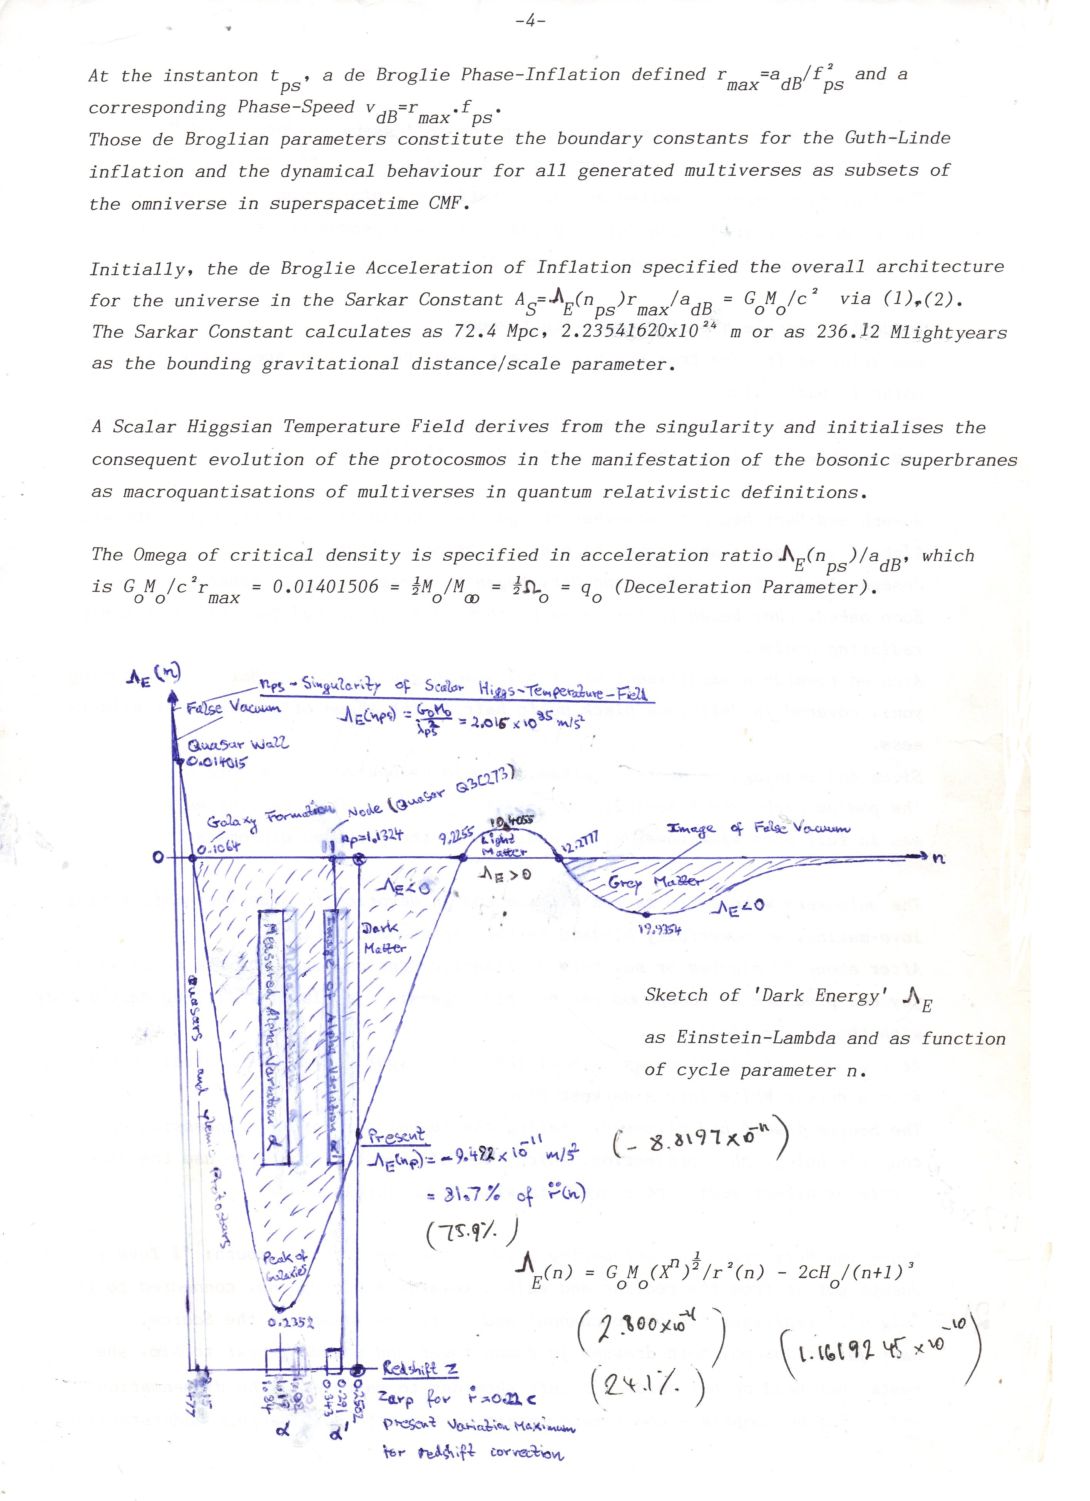 -4-
At the instanton t_ps, a de Broglie Phase-Inflation defined r_max=a_dB/f²_ps and a
corresponding Phase-Speed v_dB=r_max.f_ps.
Those de Broglian parameters constitute the boundary constants for the Guth-Linde
inflation and the dynamical behaviour for all generated multiverses as subsets of
the omniverse in superspacetime CMF.
Initially, the de Broglie Acceleration of Inflation specified the overall architecture
for the universe in the Sarkar Constant A_S=Λ_E(n_ps)r_max/a_dB = G_oM_o/c² via (1),(2).
The Sarkar Constant calculates as 72.4 Mpc, 2.23541620x10²⁴ m or as 236.12 Mlightyears
as the bounding gravitational distance/scale parameter.
A Scalar Higgsian Temperature Field derives from the singularity and initialises the
consequent evolution of the protocosmos in the manifestation of the bosonic superbranes
as macroquantisations of multiverses in quantum relativistic definitions.
The Omega of critical density is specified in acceleration ratio Λ_E(n_ps)/a_dB, which
is G_oM_o/c²r_max = 0.01401506 = ½M_o/M_∞ = ½Ω_o = q_o (Deceleration Parameter).
Λ_E(n)
n_ps - Singularity of Scalar Higgs-Temperature-Field
False Vacuum
Λ_E(n_ps) = G_oM_o/λ²_ps = 2.015 x 10⁸⁵ m/s²
Quasar Wall
0.014015
Galaxy Formation
Node (Quasar Q3C273)
0.1064
n_p=1.1324
9.2255
10.4055
Light
Matter
Λ_E>0
12.2777
Image of False Vacuum
0
n
Λ_E<0
Grey Matter
Λ_E<0
19.9354
Dark
Matter
Measured-Alpha-Variation α
Image of Alpha-Variation α'
Quasars and ylemic Protostars
Sketch of 'Dark Energy' Λ_E
as Einstein-Lambda and as function
of cycle parameter n.
Present
Λ_E(n_p) = -9.422 x 10⁻¹¹ m/s²
(- 8.8197 x 10⁻¹¹)
= 81.7% of r̈(n)
(75.9%)
Peak of
Galaxies
0.2352
Λ_E(n) = G_oM_o(Xⁿ)^½/r²(n) - 2cH_o/(n+1)³
(2.800x10⁻¹¹)
(1.1619245 x 10⁻¹⁰)
(24.1%)
Redshift z
7.477
1.84
1.17
0.343
0.291
0.2502
α
α'
Zarp for ṙ=0.22 c
Present Variation Maximum
for redshift correction